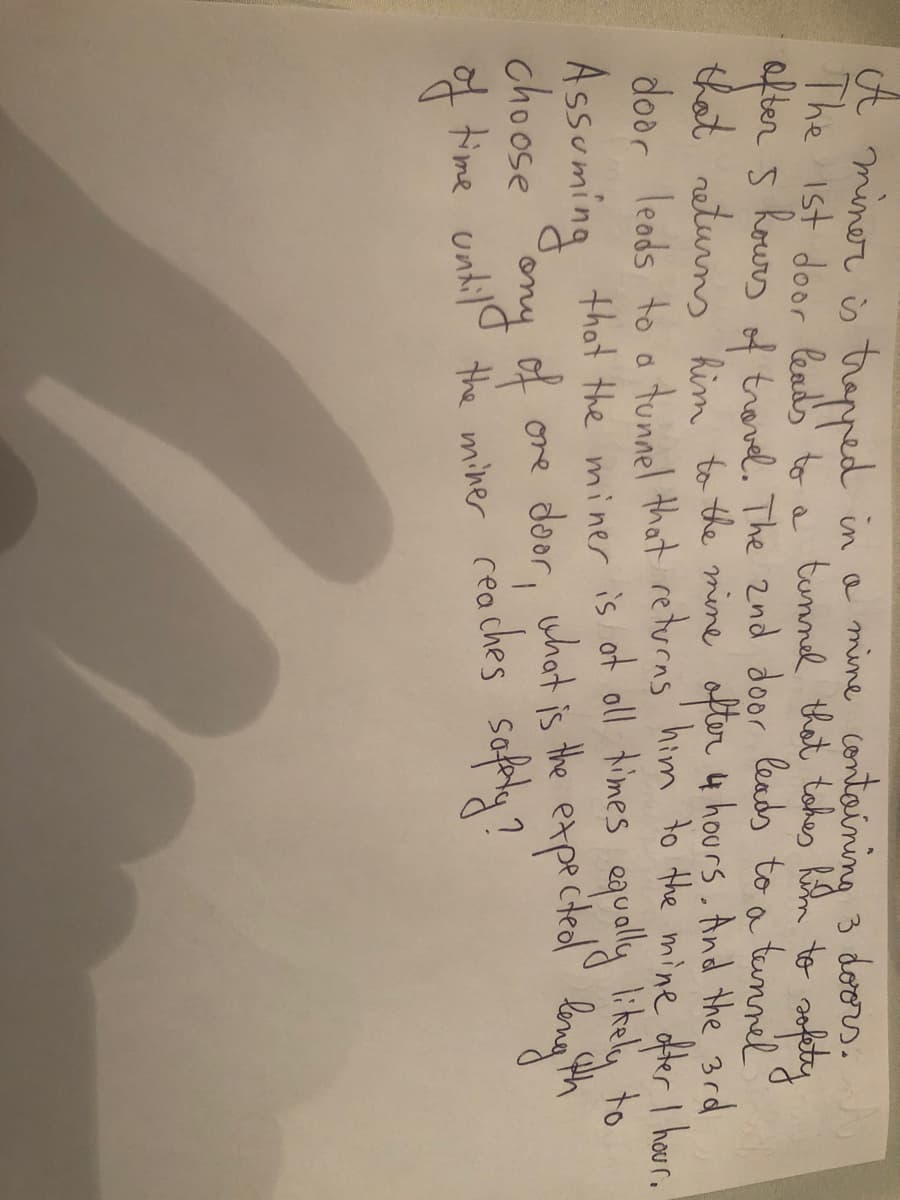 A miner is trapped in a mine containing 3 doors.
The 1st door leads to a tunnel that takes him to safety
after 5 hours of travel. The 2nd door leads to a tunnel
that returns him to the mine after 4 hours. And the 3rd
door leads to a tunnel that returns him to the mine after 1 hour.
Assuming that the miner is at all times equally likely to
choose any of one door, what is the expected length
of time until the miner reaches safety?